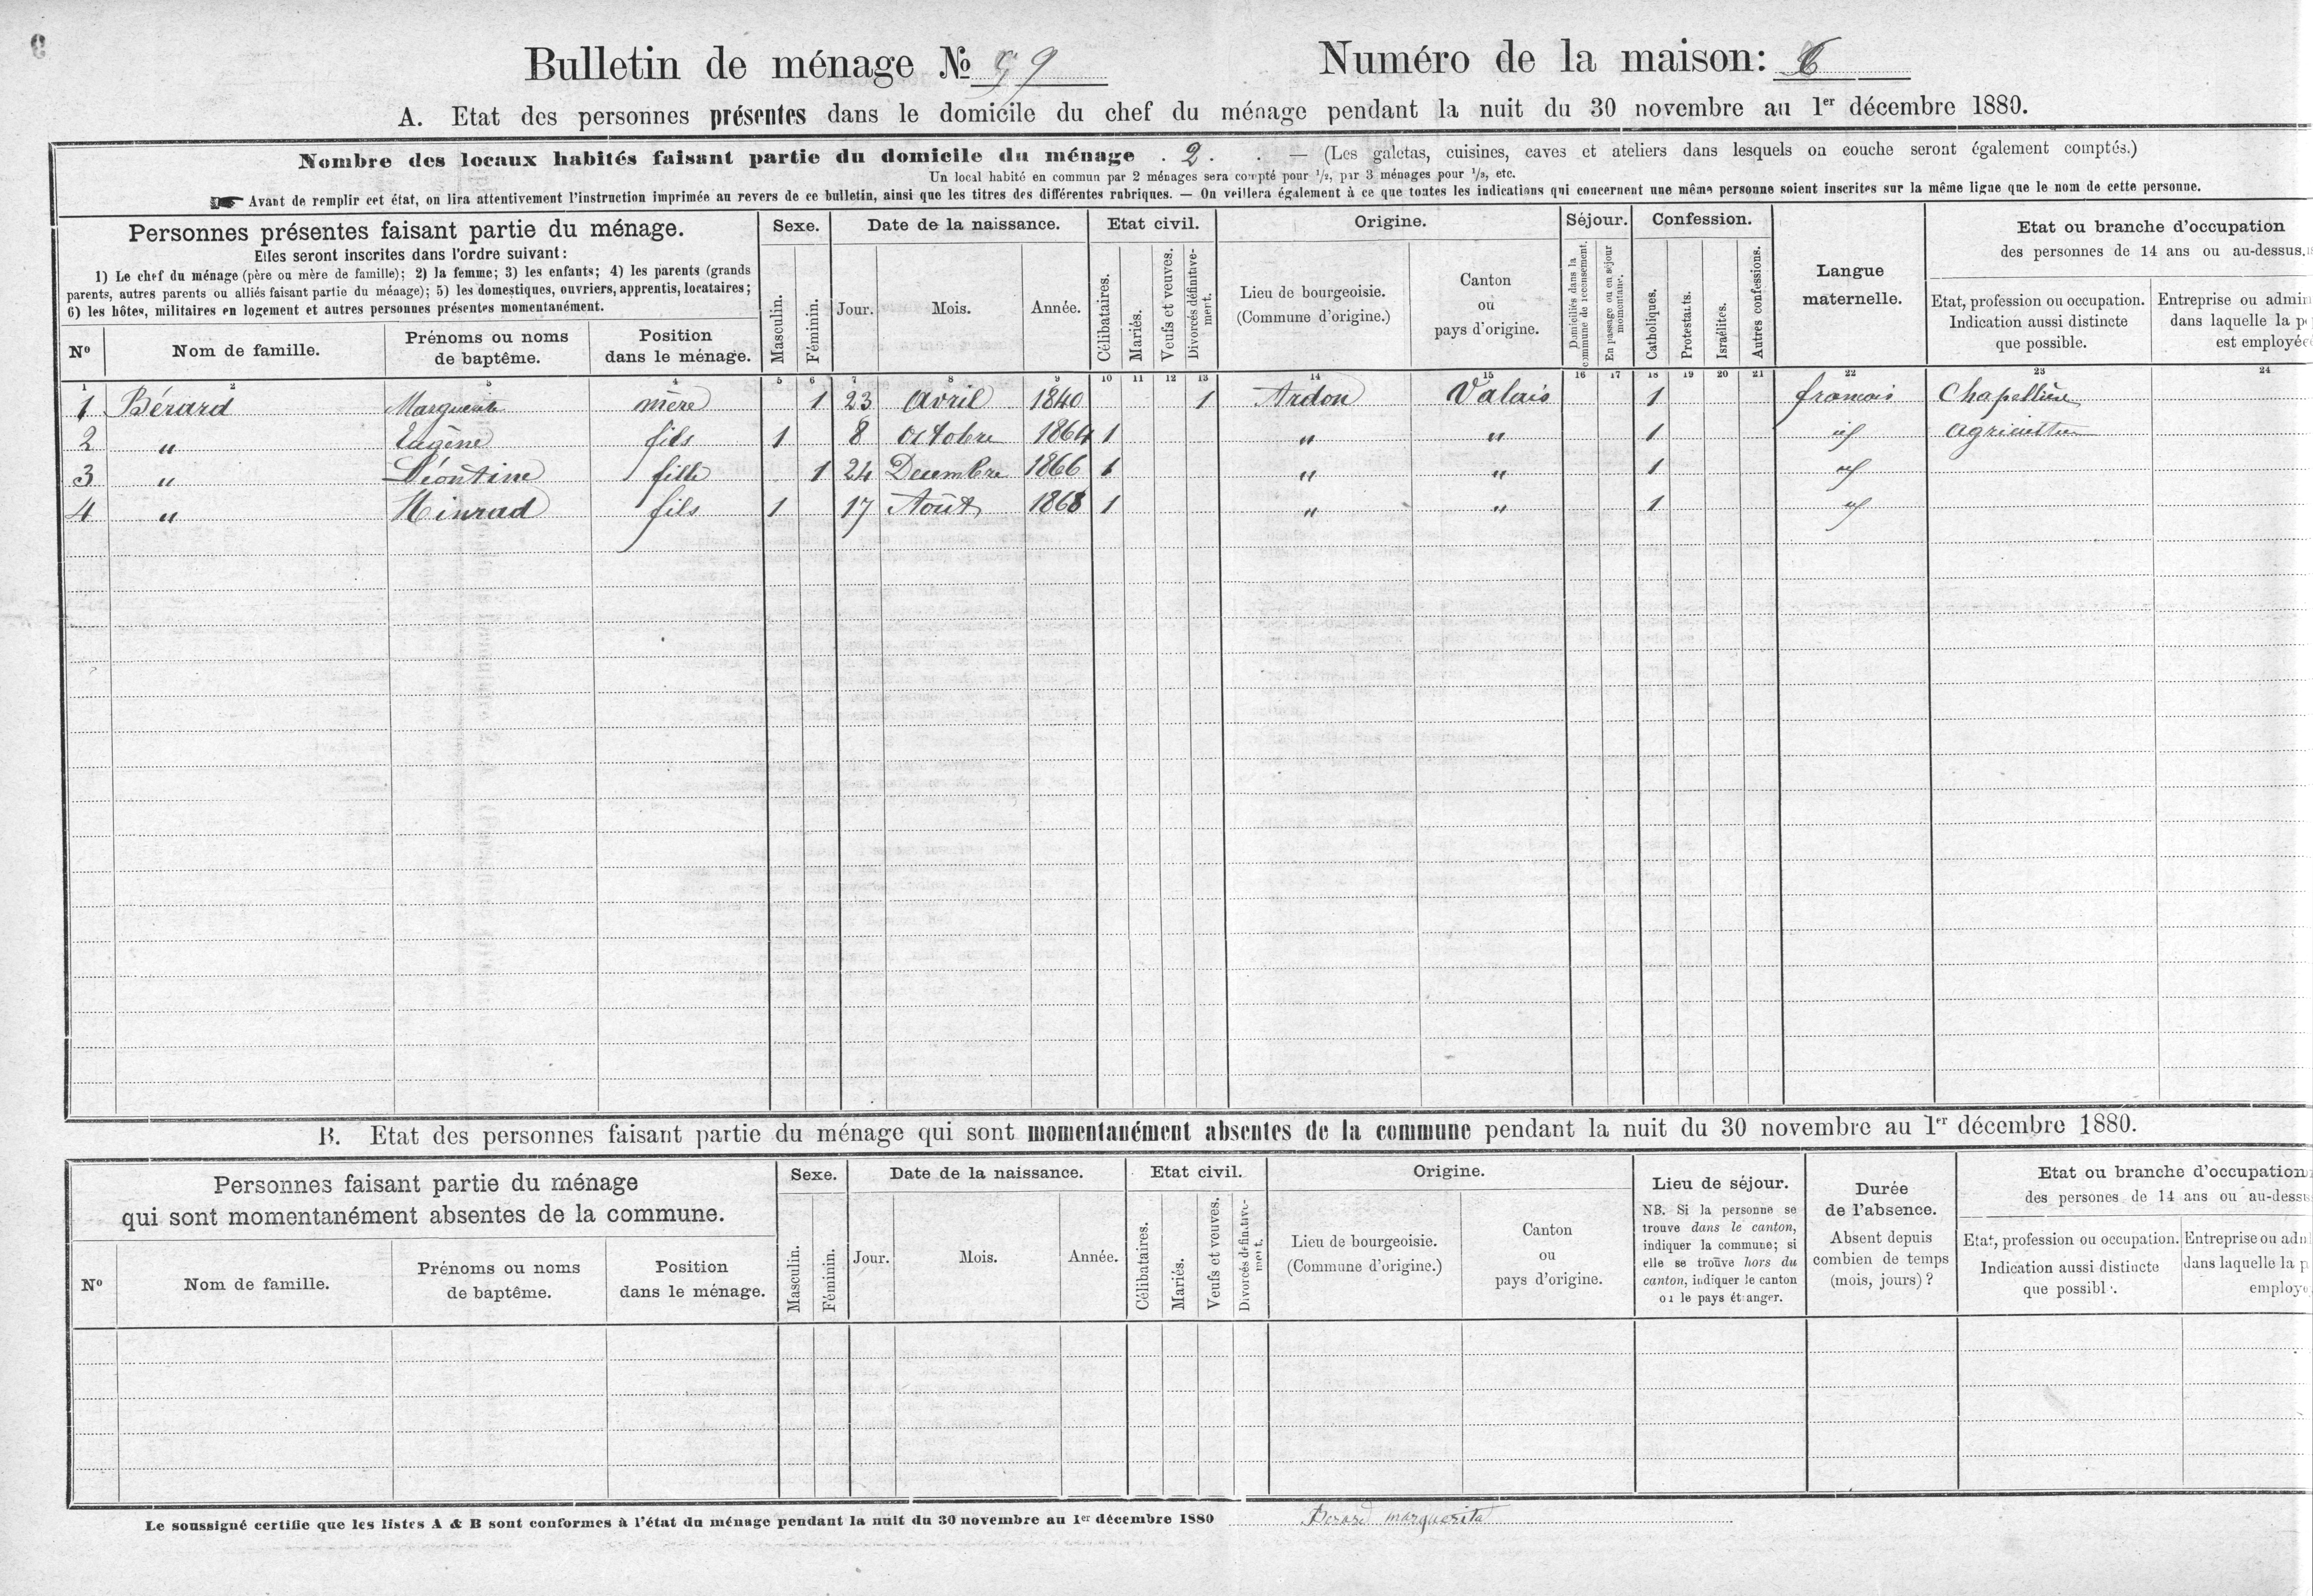 Bulletin de ménage № 59
Numéro de la maison:
A. Etat des personnes présentes dans le domicile du chef du ménage pendant la nuit du 30 novembre au 1er décembre 1880.
Nombre des locaux habités faisant partie du domicile du ménage . 2 . . — (Les galetas, cuisines, caves et ateliers dans lesquels on couche seront également comptés.)
Un local habité en commun par 2 ménages sera compté pour 1/2, par 3 ménages pour 1/3, etc.
Avant de remplir cet état, on lira attentivement l'instruction imprimée au revers de ce bulletin, ainsi que les titres des différentes rubriques. — On veillera également à ce que toutes les indications qui concernent une même personne soient inscrites sur la même ligne que le nom de cette personne.
Personnes présentes faisant partie du ménage.
Elles seront inscrites dans l'ordre suivant:
1) Le chef du ménage (père ou mère de famille); 2) la femme; 3) les enfants; 4) les parents (grands
parents, autres parents ou alliés faisant partie du ménage); 5) les domestiques, ouvriers, apprentis, locataires;
6) les hôtes, militaires en logement et autres personnes présentes momentanément.
Nº
Nom de famille.
Prénoms ou noms
de baptême.
Position
dans le ménage.
Sexe.
Masculin.
Féminin.
Date de la naissance.
Jour.
Mois.
Année.
Etat civil.
Célibataires.
Mariés.
Veufs et veuves.
Divorcés définitive-
ment.
Origine.
Lieu de bourgeoisie.
(Commune d'origine.)
Canton
ou
pays d'origine.
Séjour.
Domiciliés dans la
commune de recensement.
En passage ou en séjour
momentané.
Confession.
Catholiques.
Protestants.
Israélites.
Autres confessions.
Langue
maternelle.
Etat ou branche d'occupation
des personnes de 14 ans ou au-dessus.
Etat, profession ou occupation.
Indication aussi distincte
que possible.
Entreprise ou admin
dans laquelle la p
est employée
1 2 3 4 5 6 7 8 9 10 11 12 13 14 15 16 17 18 19 20 21 22 23 24
1 Bérard Marguerite mère 1 23 Avril 1840 1 Ardon Valais 1 francais Chapellière
2 " Eugène fils 1 8 Octobre 1864 1 " " 1 " agriculteur
3 " Léontine fille 1 24 Decembre 1866 1 " " 1 "
4 " Minrad fils 1 17 Août 1868 1 " " 1 "
B. Etat des personnes faisant partie du ménage qui sont momentanément absentes de la commune pendant la nuit du 30 novembre au 1er décembre 1880.
Personnes faisant partie du ménage
qui sont momentanément absentes de la commune.
Nº
Nom de famille.
Prénoms ou noms
de baptême.
Position
dans le ménage.
Sexe.
Masculin.
Féminin.
Date de la naissance.
Jour.
Mois.
Année.
Etat civil.
Célibataires.
Mariés.
Veufs et veuves.
Divorcés définitive-
ment.
Origine.
Lieu de bourgeoisie.
(Commune d'origine.)
Canton
ou
pays d'origine.
Lieu de séjour.
NB. Si la personne se
trouve dans le canton,
indiquer la commune; si
elle se trouve hors du
canton, indiquer le canton
ou le pays étranger.
Durée
de l'absence.
Absent depuis
combien de temps
(mois, jours)?
Etat ou branche d'occupation
des persones de 14 ans ou au-dessu
Etat, profession ou occupation.
Indication aussi distincte
que possible.
Entreprise ou adn
dans laquelle la p
employé
Le soussigné certifie que les listes A & B sont conformes à l'état du ménage pendant la nuit du 30 novembre au 1er décembre 1880 Berard marguerite